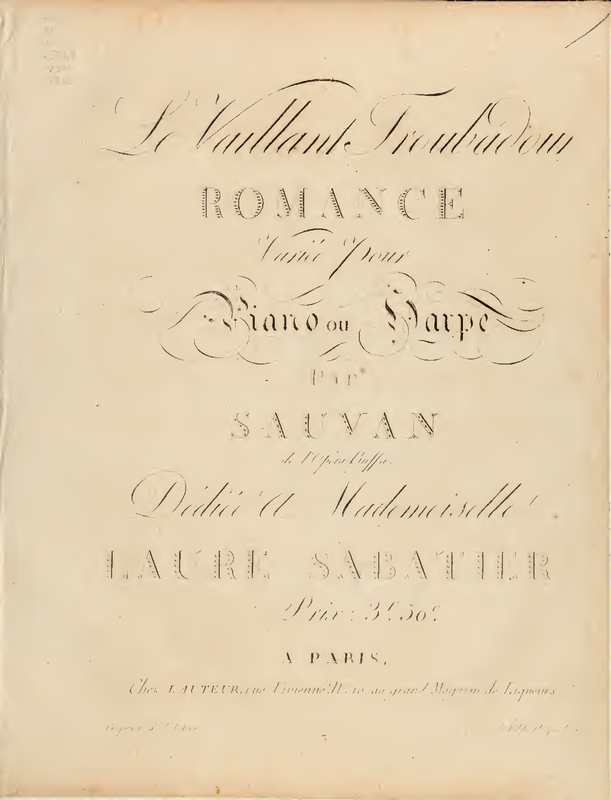 Le Vaillant Troubadour
ROMANCE
Variée pour
Piano ou Harpe
Par
SAUVAN
de l'Opéra Buffa.
Dédiée A Mademoiselle
LAURE SABATIER
Prix: 3f. 50c.
A PARIS,
Chez L'AUTEUR, rue Vivienne No. 10 au grand Magasin de Liqueurs